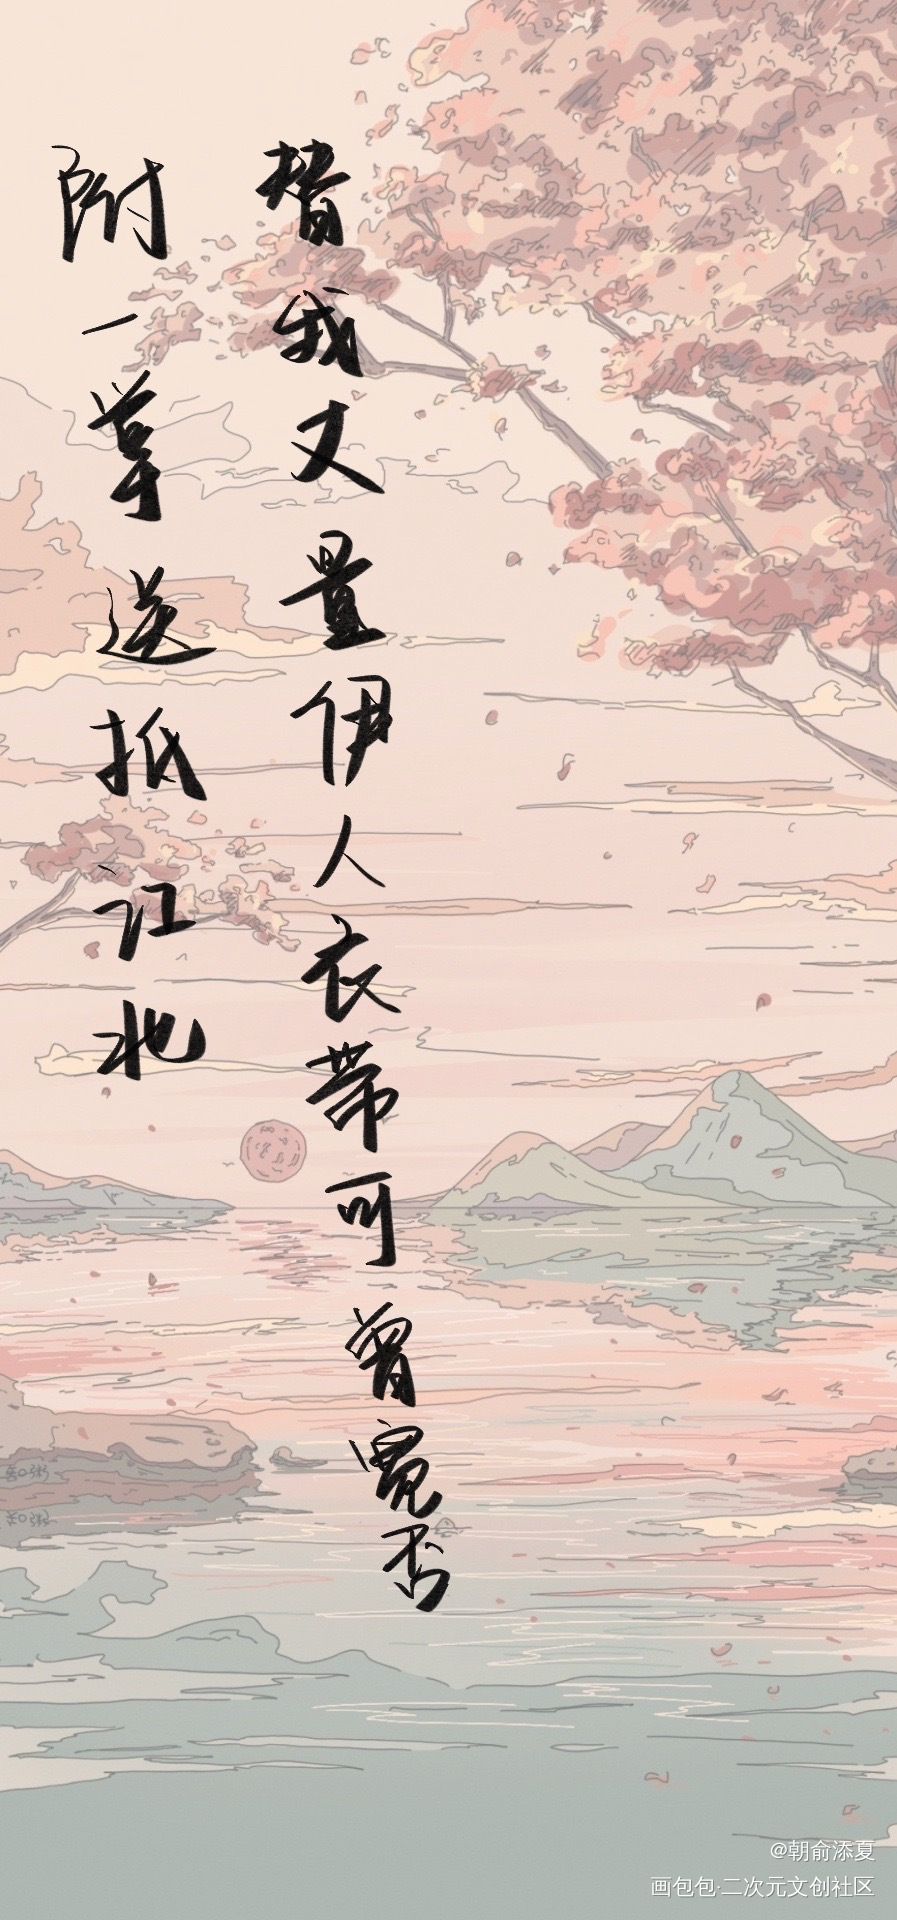 替我丈量伊人衣带可曾宽否
附一掌送抵江北
知粥
知粥
@朝俞添夏
画包包·二次元文创社区